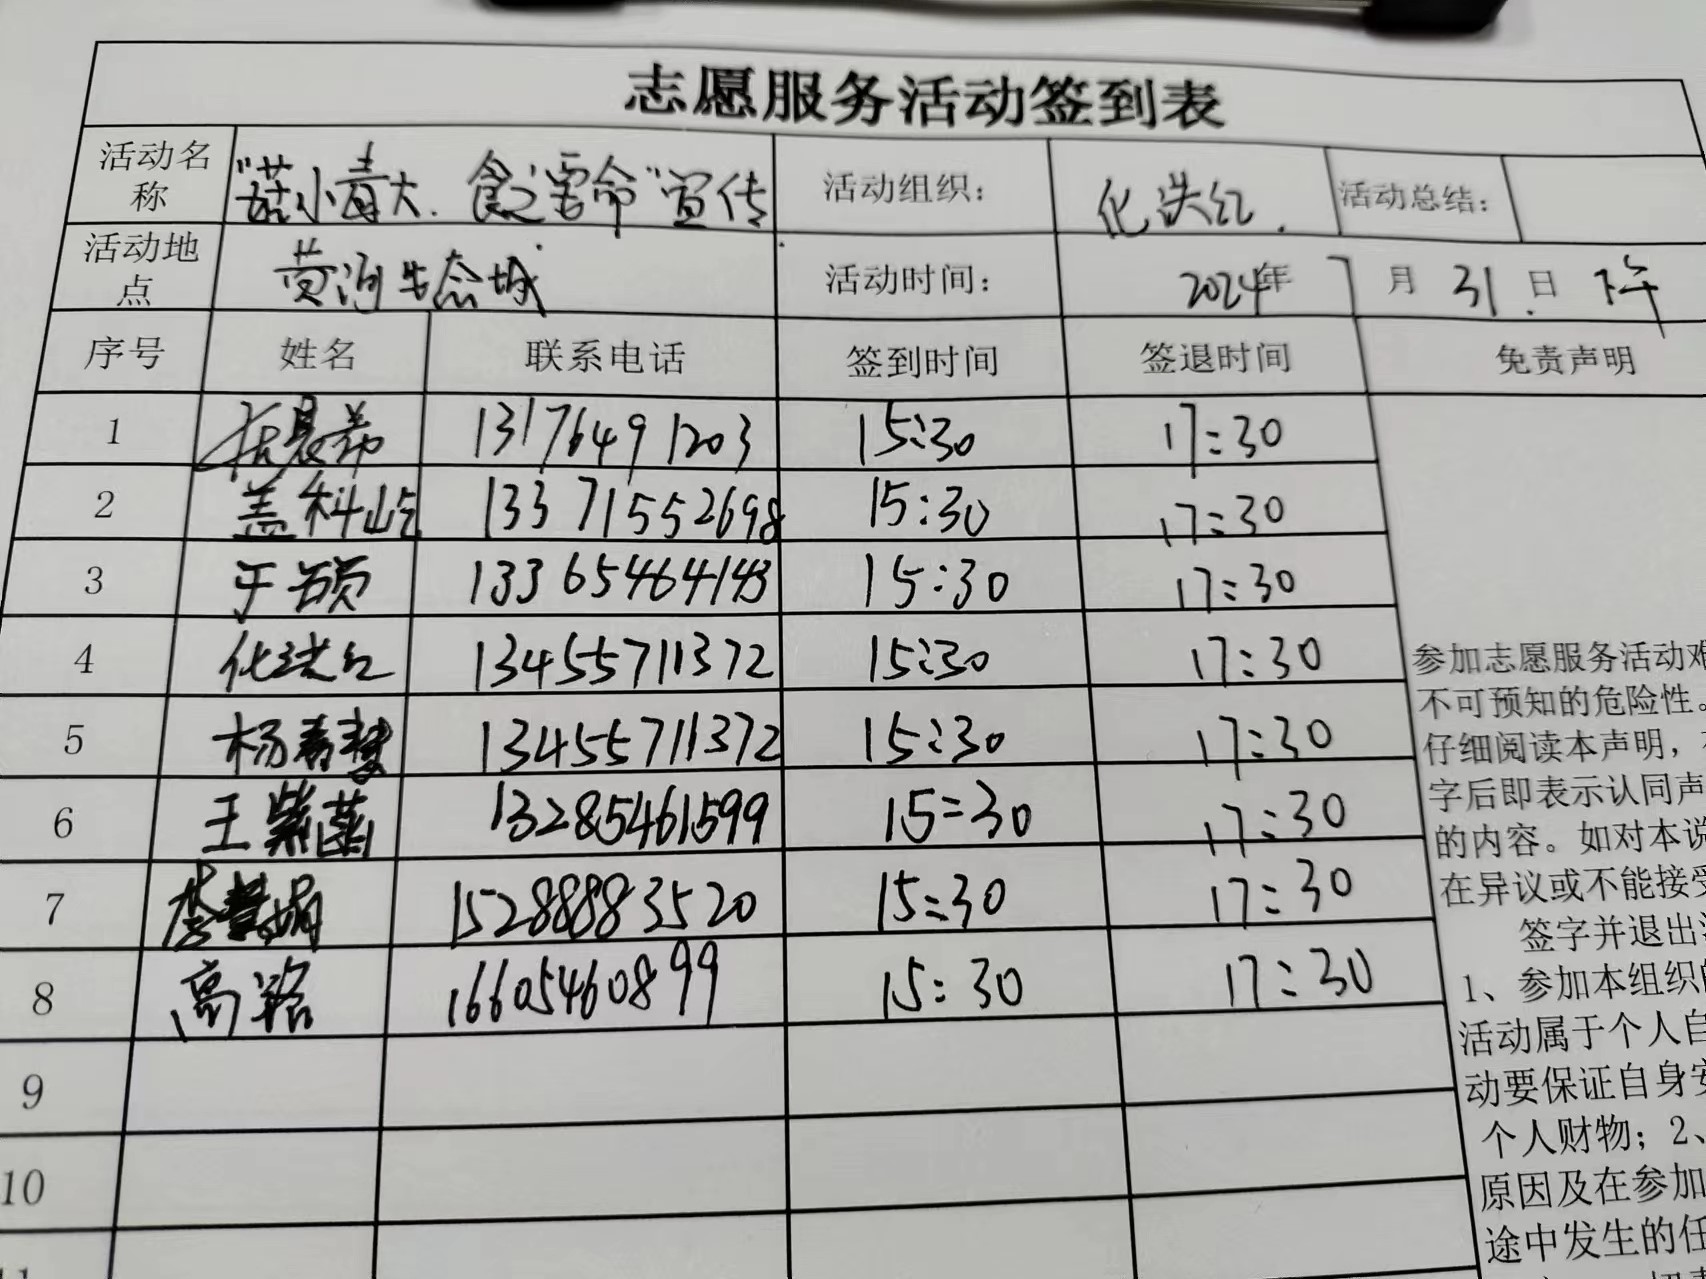 志愿服务活动签到表
活动名称 "菇小毒大.食之要命"宣传 活动组织: 化洪红. 活动总结:
活动地点 黄河生态城 活动时间: 2024年 7月31日 下午
序号 姓名 联系电话 签到时间 签退时间 免责声明
1 13176491203 15:30 17:30
2 盖科屹 13371552698 15:30 17:30
3 于硕 13365464143 15:30 17:30
4 化洪红 13455711372 15:30 17:30
5 杨 13455711372 15:30 17:30
6 王紫菡 13285461599 15:30 17:30
7 李 15288883520 15:30 17:30
8 高 16605460899 15:30 17:30
9
10
11
参加志愿服务活动难
不可预知的危险性。
仔细阅读本声明，
字后即表示认同声
的内容。如对本说
在异议或不能接受
签字并退出
1、参加本组织的
活动属于个人自
动要保证自身安
个人财物；2、
原因及在参加
途中发生的任